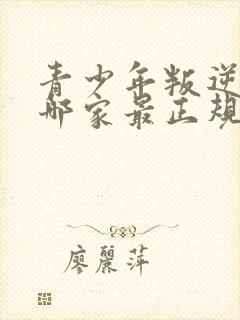 青少年叛逆
哪家最正规
廖麗萍